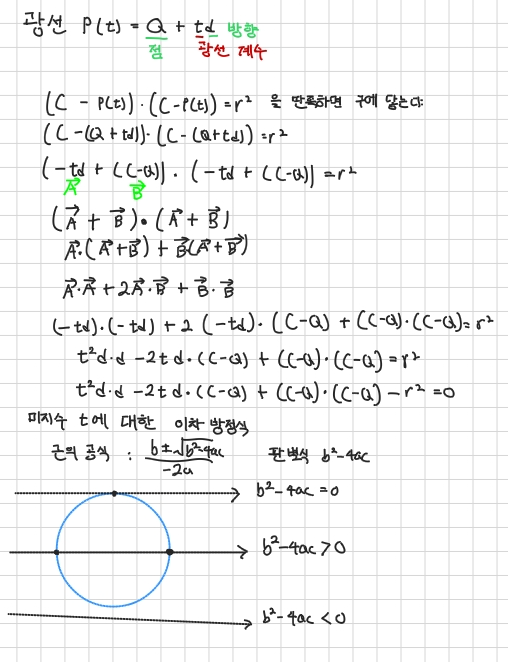 광선 P(t) = Q + td 방향
점 광선 계수
(C - P(t))·(C-P(t)) = r² 을 만족하면 구에 닿는다.
(C-(Q+td))·(C-(Q+td)) = r²
(-td + (C-Q))·(-td + (C-Q)) = r²
A⃗ B⃗
(A⃗ + B⃗)·(A⃗ + B⃗)
A⃗·(A⃗+B⃗) + B⃗(A⃗+B⃗)
A⃗·A⃗ + 2A⃗·B⃗ + B⃗·B⃗
(-td)·(-td) + 2(-td)·(C-Q) + (C-Q)·(C-Q) = r²
t²d·d - 2td·(C-Q) + (C-Q)·(C-Q) = r²
t²d·d - 2td·(C-Q) + (C-Q)·(C-Q) - r² = 0
미지수 t에 대한 이차 방정식
근의 공식 : b±√b²-4ac / -2a 판별식 b²-4ac
b²-4ac = 0
b²-4ac > 0
b²-4ac < 0